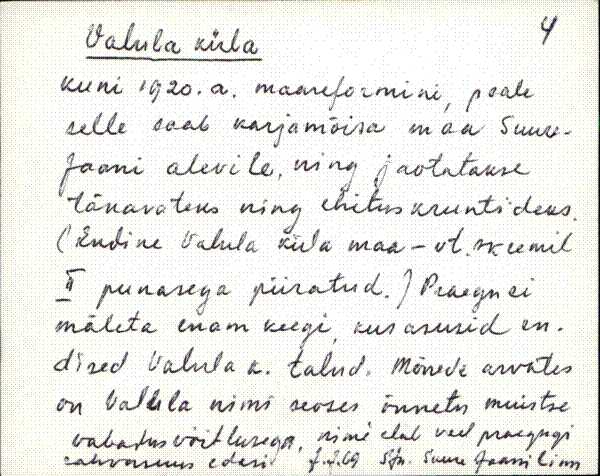 4
Valula küla
kuni 1920. a. maareformini, peale
selle saab karjamõisa maa Suure-
Jaani alevile, ning jaotatakse
tänavateks ning ehituskruntideks.
(Endine Valula küla maa - vt. skeemil
II punasega piiratud.) Praegu ei
mäleta enam keegi, kus asusid en-
dised Valula k. talud. Mõnede arvates
on Valula nimi seoses õnnetu muistse
vabadusvõitlusega, nimi elab veel praegugi
rahvasuus edasi 7.69 Sjn. Suure Jaani linn